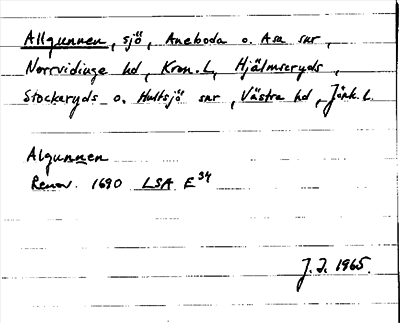 Allgunnen, sjö, Aneboda o. Asa snr,
Norrvidinge hd, Kron. L, Hjälmseryds,
Stockaryds o. Hultsjö snr, Västra hd, Jönk. L.
Algunnen
Renov. 1690 LSA E34
J.I. 1965.